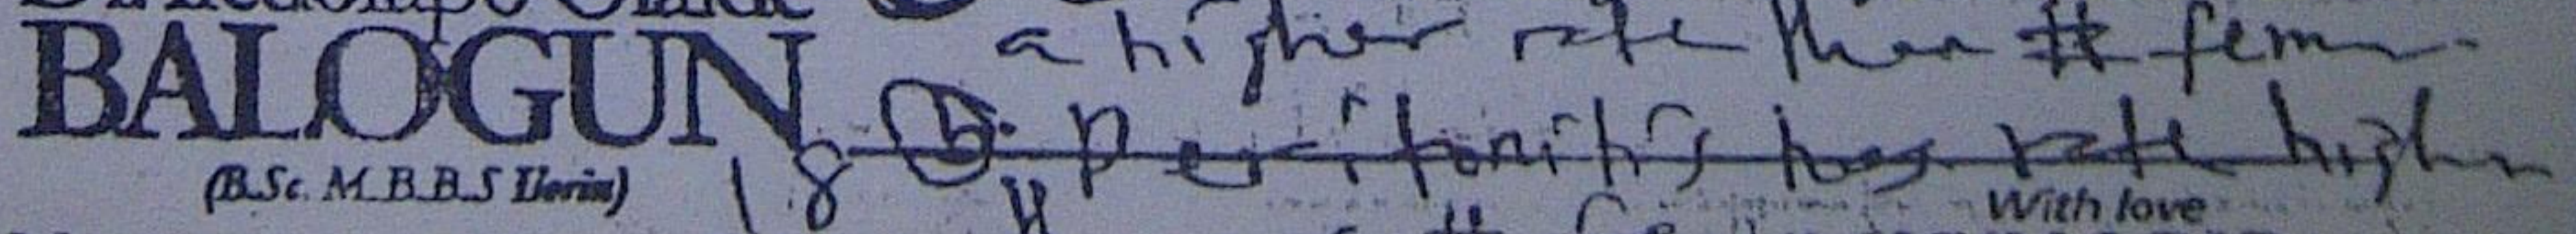 BALOGUN
(B.Sc. M.B.B.S Ilorin)
a higher rate than the fem
18 (b). Peritonitis has rate higher
With love